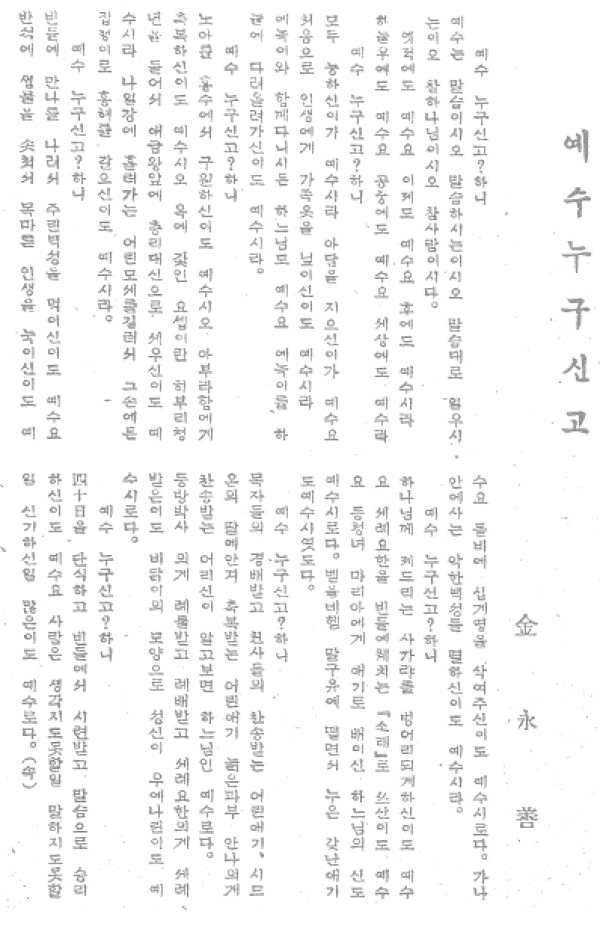 예수누구신고
金永善
예수 누구신고?하니
예수는 말슴이시오 말슴하시는이시오 말슴대로 일우시
는이오 참하나님이시오 참사람이시다.
예수 누구신고?하니
엿적에도 예수요 이제도 예수요 후에도 예수시라
하늘우에도 예수요 공중에도 예수요 세상에도 예수라
모두 능하신이가 예수시라 아담을 지으신이가 예수요
처음으로 인생에게 가죽옷을 닙이신이도 예수시라
에녹이와 함께다니시든 하느님도 예수요 에녹이를 하
늘에 다려올려가신이도 예수시라。
예수 누구신고?하니
노아를 홍수에서 구원하신이도 예수시오 아부라함에게
축복하신이도 예수시오 옥에 갗인 요셉이란 히부리청
년을 들어서 애급왕앞에 총리대신으로 세우신이도 예
수시라 나일강에 흘러가는 어린모세를길러서 그손에든
집행이로 홍해를 갈으신이도 예수시라。
예수 누구신고?하니
빈들에 만나를 나려서 주린백성을 먹이신이도 예수요
반석에 샘물을 솟처서 목마른 인생을 눅이신이도 예
수요 돌비에 십게명을 삭여주신이도 예수시로다。가나
안에사는 악한백성들 멸하신이도 예수시라。
예수 누구신고?하니
하나님께 제드리는 사가랴를 벙어리되게하신이도 예수
요 세례요한을 빈들에웨치는 『소래』로 쓰산이도 예수
요 동정녀 마리아에게 애기로 배이신 하느님의 신도
예수시로다。벧을네헴 말구유에 떨면서 누은 갓난애기
도예수시엿도다。
예수 누구신고?하니
목자들의 경배받고 천사들의 찬송받는 어린애기、시므
온의 팔에안겨 축복받는 어린애기 늙은과부 안나의게
찬송받는 어리신이 알고보면 하느님인 예수로다。
동방박사 의게 례물받고 례배받고 세례요한의게 세례
받은이도 비닭이의 모양으로 성신이 우에나린이도 예
수시로다。
예수 누구신고?하니
四十日을 단식하고 빈들에서 시련받고 말슴으로 승리
하신이도 예수요 사람은 생각지도못할일 말하지도못할
일 신기하신일 많은이도 예수로다。(속)